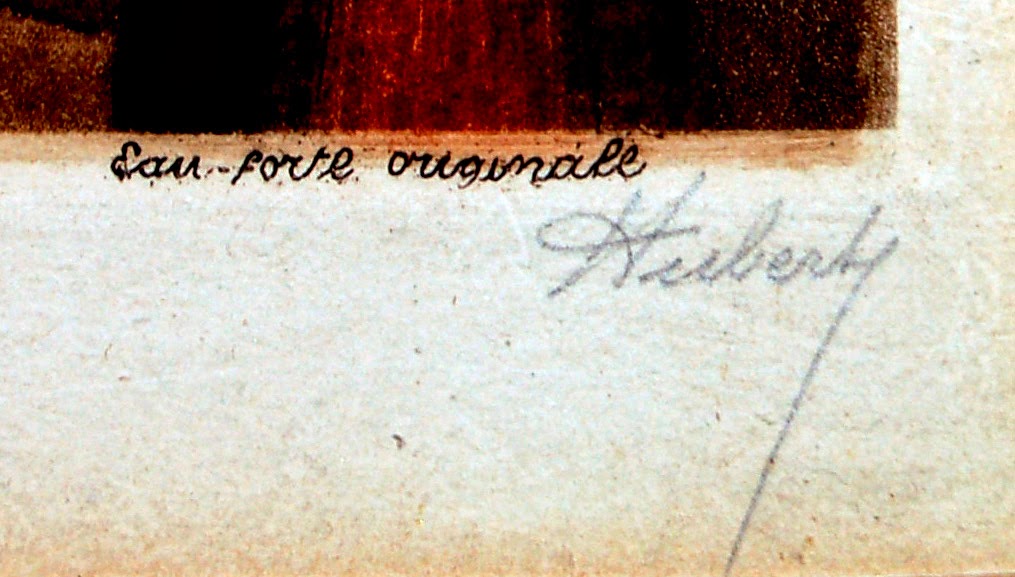 Eau-forte originale
Hubert